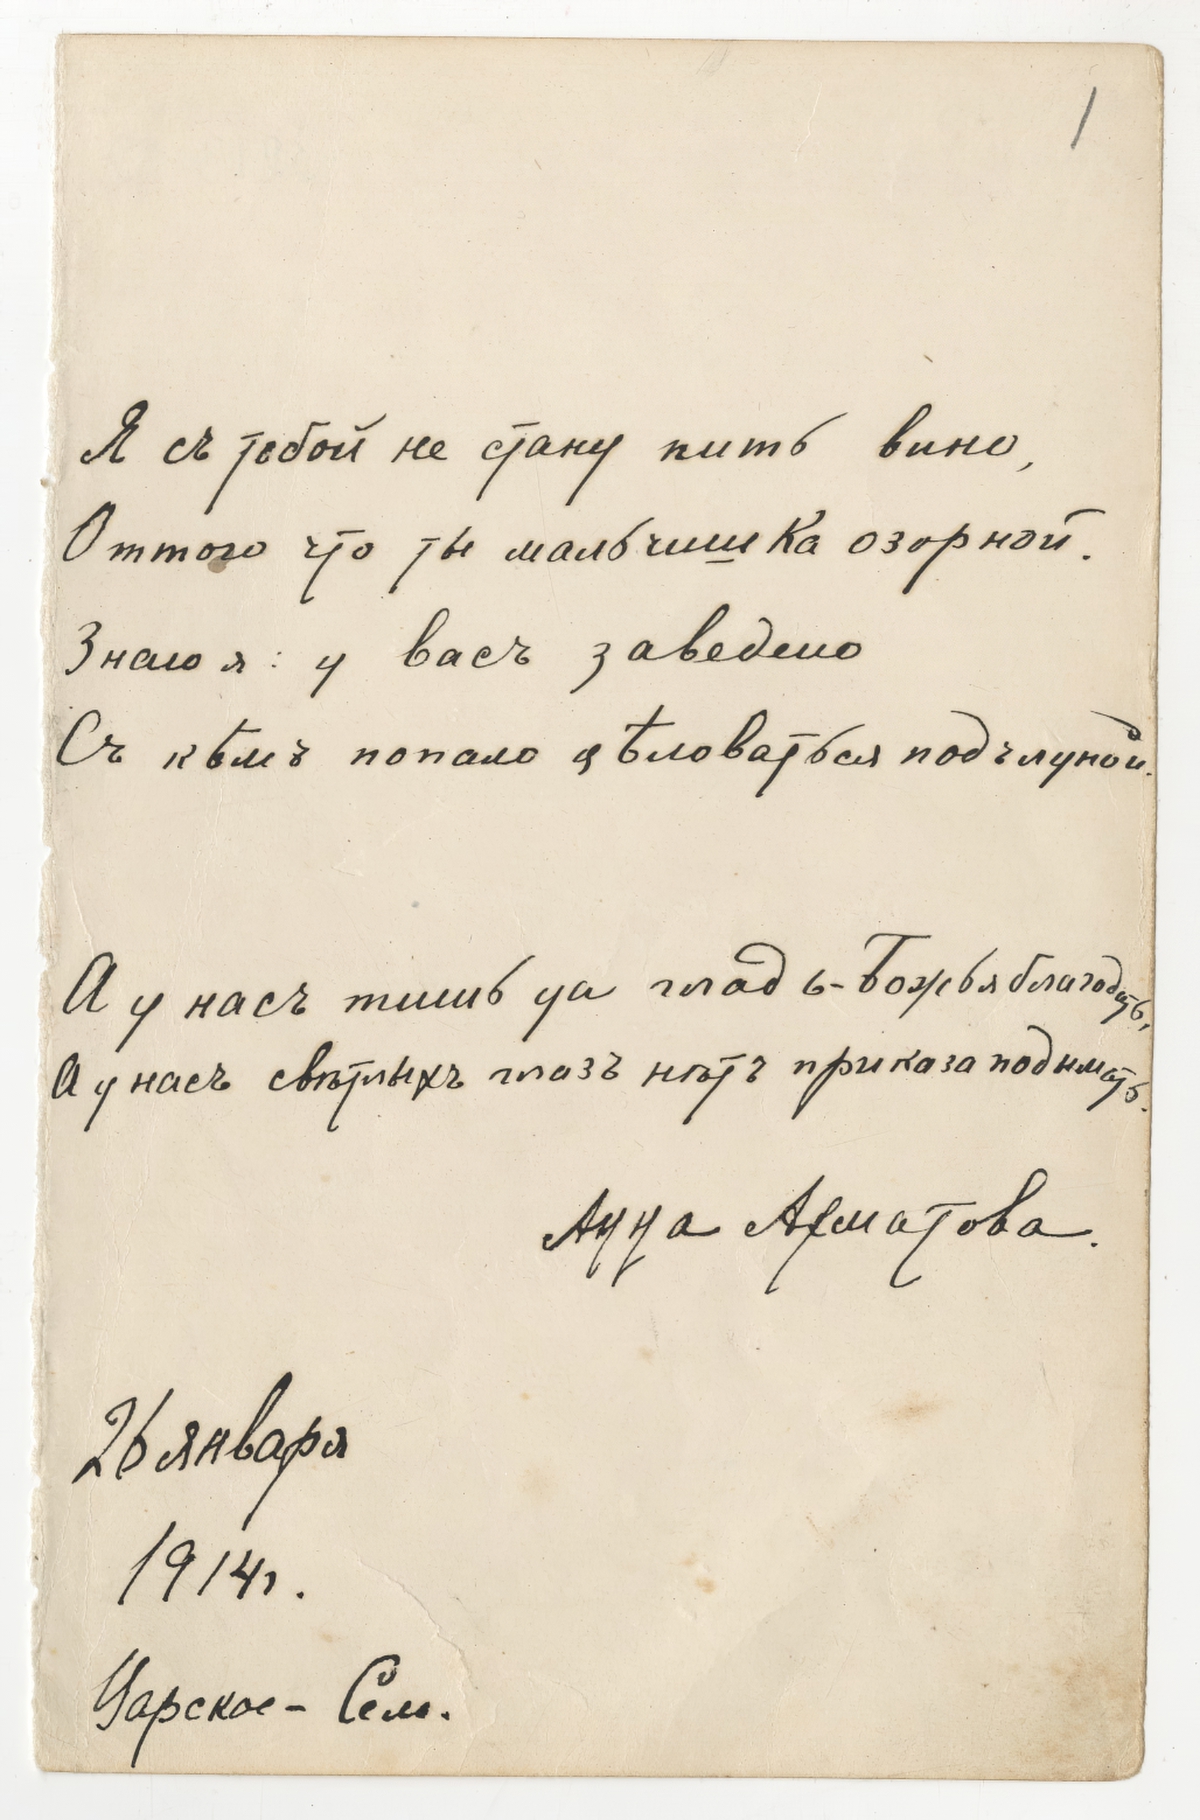 1
Я съ тобой не стану пить вино,
Оттого что ты мальчишка озорной.
Знаю я: у васъ заведено
Съ кѣмъ попало цѣловаться подъ луной.
А у насъ тишь да гладь - Божья благодать,
А у насъ свѣтлыхъ глазъ нѣтъ приказа подымать.
Анна Ахматова.
26 января
1914 г.
Царское - Село.